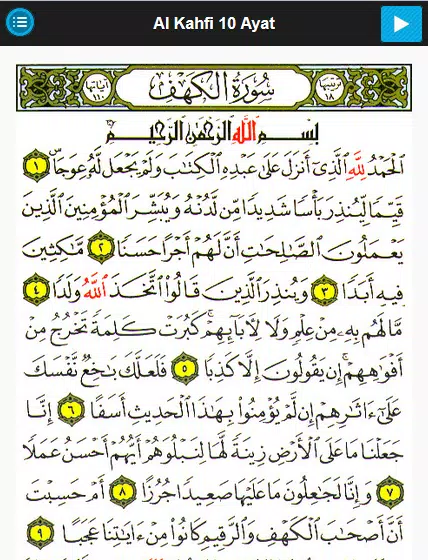 Al Kahfi 10 Ayat
ترتيبها ١٨ سُورَةُ الْكَهْفِ آياتها ١١٠
بِسْمِ ٱللَّهِ ٱلرَّحْمَٰنِ ٱلرَّحِيمِ
ٱلْحَمْدُ لِلَّهِ ٱلَّذِىٓ أَنزَلَ عَلَىٰ عَبْدِهِ ٱلْكِتَٰبَ وَلَمْ يَجْعَل لَّهُۥ عِوَجَا ۜ ١
قَيِّمًا لِّيُنذِرَ بَأْسًا شَدِيدًا مِّن لَّدُنْهُ وَيُبَشِّرَ ٱلْمُؤْمِنِينَ ٱلَّذِينَ
يَعْمَلُونَ ٱلصَّٰلِحَٰتِ أَنَّ لَهُمْ أَجْرًا حَسَنًا ٢ مَّٰكِثِينَ
فِيهِ أَبَدًا ٣ وَيُنذِرَ ٱلَّذِينَ قَالُوا۟ ٱتَّخَذَ ٱللَّهُ وَلَدًا ٤
مَّا لَهُم بِهِۦ مِنْ عِلْمٍ وَلَا لِءَابَآئِهِمْ ۚ كَبُرَتْ كَلِمَةً تَخْرُجُ مِنْ
أَفْوَٰهِهِمْ ۚ إِن يَقُولُونَ إِلَّا كَذِبًا ٥ فَلَعَلَّكَ بَٰخِعٌ نَّفْسَكَ
عَلَىٰٓ ءَاثَٰرِهِمْ إِن لَّمْ يُؤْمِنُوا۟ بِهَٰذَا ٱلْحَدِيثِ أَسَفًا ٦ إِنَّا
جَعَلْنَا مَا عَلَى ٱلْأَرْضِ زِينَةً لَّهَا لِنَبْلُوَهُمْ أَيُّهُمْ أَحْسَنُ عَمَلًا
٧ وَإِنَّا لَجَٰعِلُونَ مَا عَلَيْهَا صَعِيدًا جُرُزًا ٨ أَمْ حَسِبْتَ
أَنَّ أَصْحَٰبَ ٱلْكَهْفِ وَٱلرَّقِيمِ كَانُوا۟ مِنْ ءَايَٰتِنَا عَجَبًا ٩